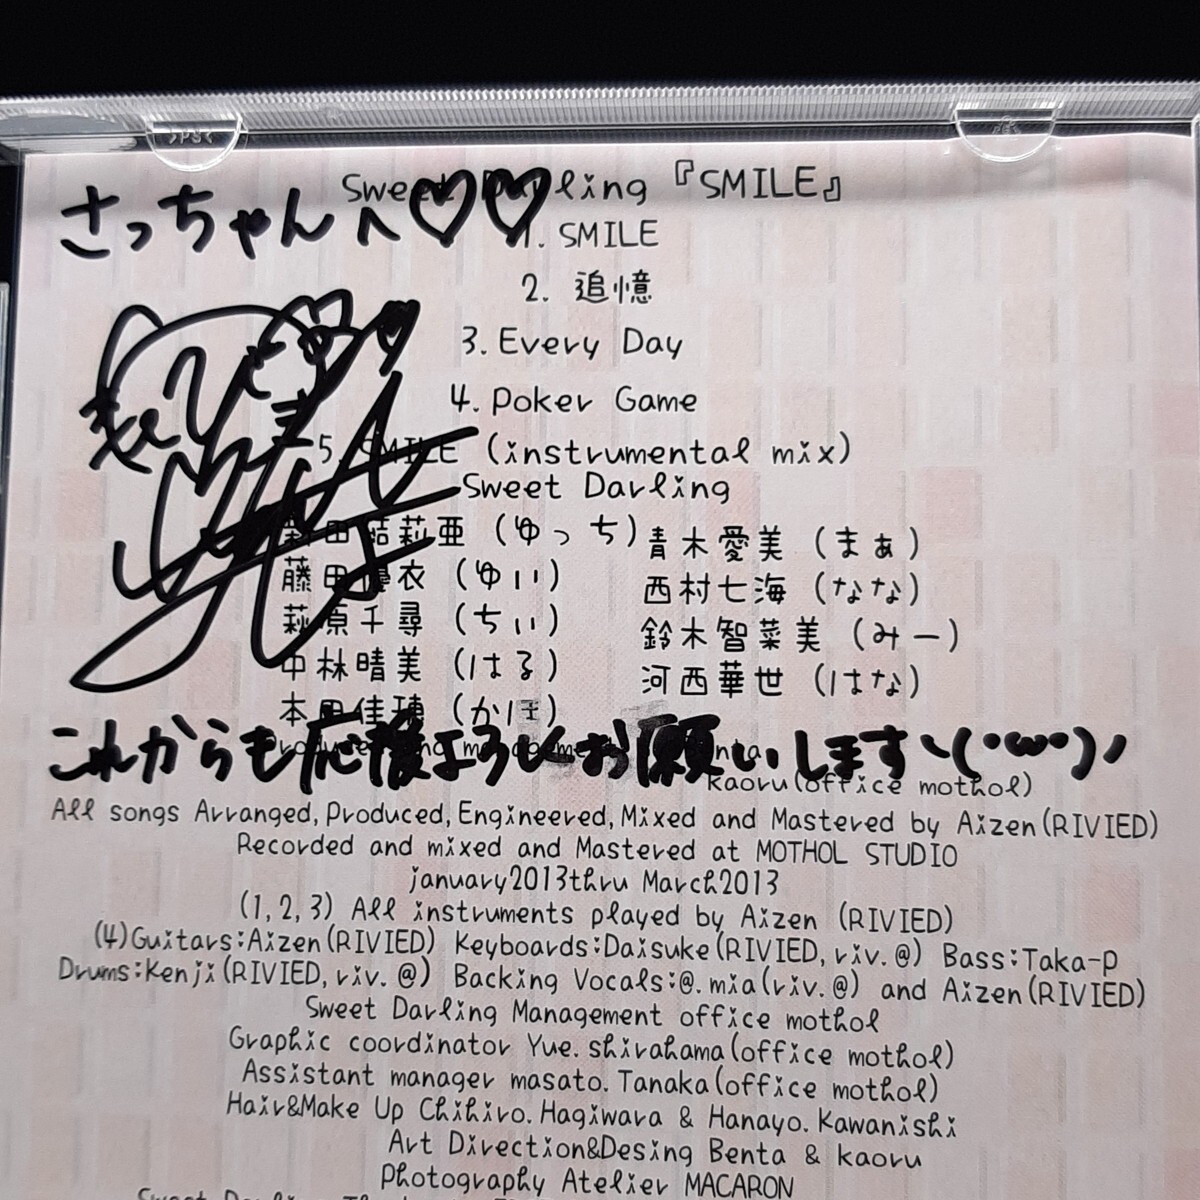 Sweet Darling『SMILE』
さっちゃんへ♡♡
1. SMILE
2. 追憶
3. Every Day
4. Poker Game
5. SMILE (instrumental mix)
Sweet Darling
田結莉亜 (ゆっち) 青木愛美 (まぁ)
藤田優衣 (ゆい) 西村七海 (なな)
萩原千尋 (ちい) 鈴木智菜美 (みー)
中林晴美 (はる) 河西華世 (はな)
本田佳穂 (かほ)
これからも応援よろしくお願いしますヽ(·ω·)ノ
kaoru(office mothol)
All songs Arranged,Produced,Engineered,Mixed and Mastered by Aizen(RIVIED)
Recorded and mixed and Mastered at MOTHOL STUDIO
january2013thru March2013
(1,2,3) All instruments played by Aizen (RIVIED)
(4)Guitars:Aizen(RIVIED) Keyboards:Daisuke(RIVIED,riv.@) Bass:Taka-p
Drums:Kenji(RIVIED,riv.@) Backing Vocals:@.mia(riv.@) and Aizen(RIVIED)
Sweet Darling Management office mothol
Graphic coordinator Yue.shirahama(office mothol)
Assistant manager masato.Tanaka(office mothol)
Hair&Make Up Chihiro.Hagiwara & Hanayo.Kawanishi
Art Direction&Desing Benta & kaoru
Photography Atelier MACARON